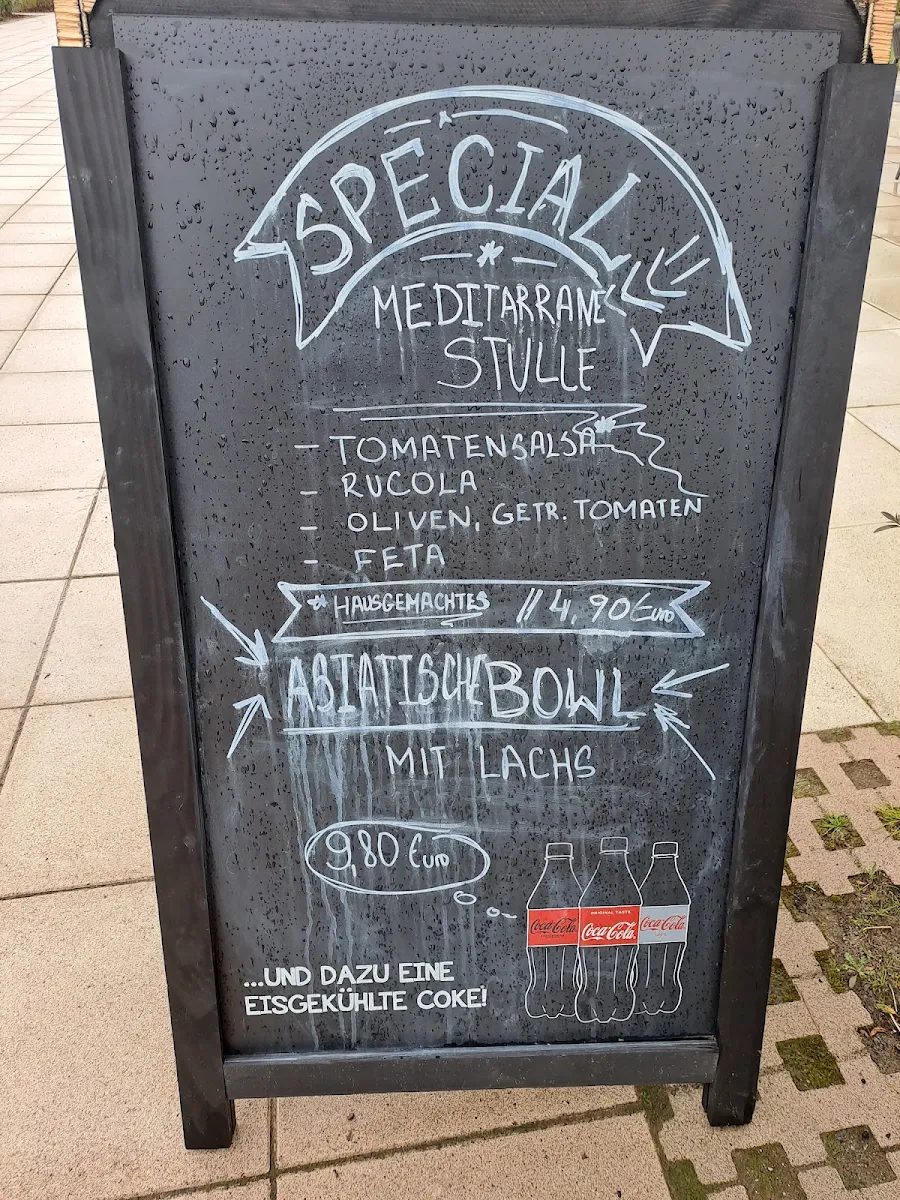 SPECIAL
MEDITARRANE
STULLE
- TOMATENSALSA *
- RUCOLA
- OLIVEN, GETR. TOMATEN
- FETA
* HAUSGEMACHTES // 4,90 Euro
ASIATISCHE BOWL
MIT LACHS
9,80 Euro
Coca-Cola
ORIGINAL TASTE
Coca-Cola
Coca-Cola
...UND DAZU EINE
EISGEKÜHLTE COKE!